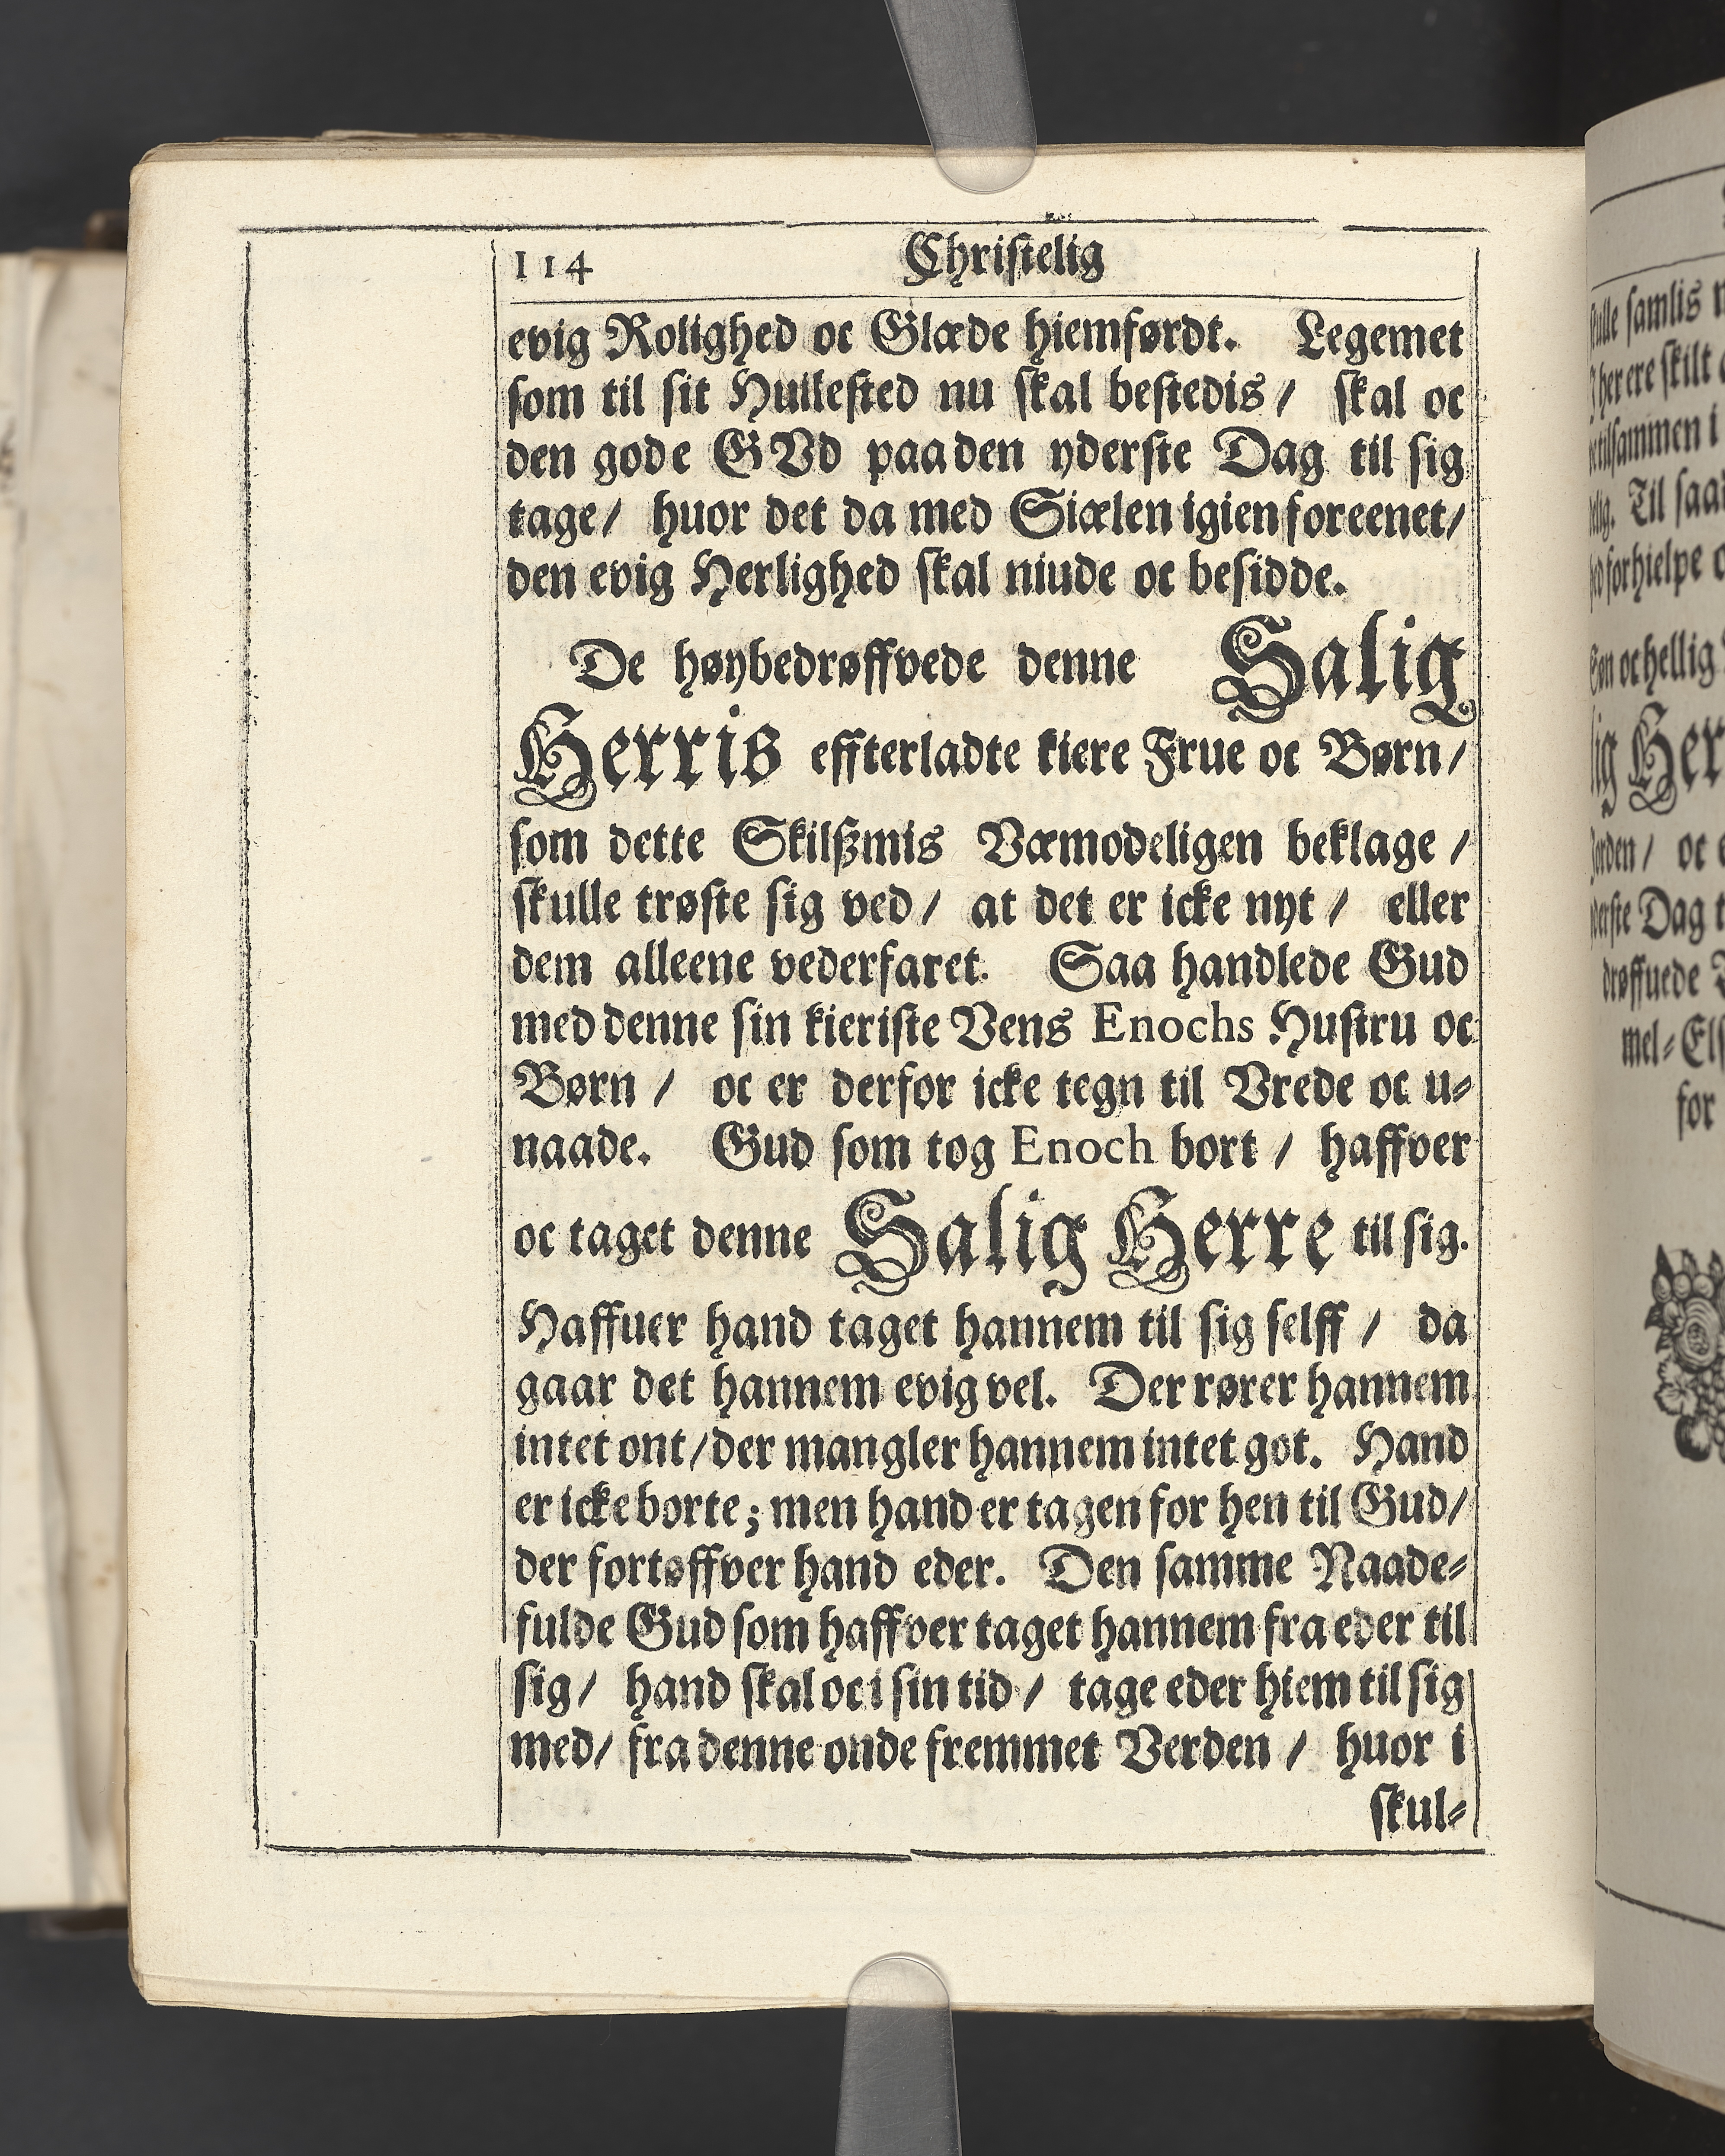 114 Christelig
evig Rolighed oc Glæde hiemførdt. Legemet
som til sit Huilested nu skal bestedis / skal oc
den gode GVd paa den yderste Dag til sig
tage / huor det da med Siælen igien foreenet /
den evig Herlighed skal niude oc besidde.
De høybedrøffvede denne Salig
Herris effterladte kiere Frue oc Børn /
som dette Skilßmis Væmodeligen beklage /
skulle trøste sig ved / at det er icke nyt / eller
dem alleene vederfaret. Saa handlede Gud
med denne sin kieriste Vens Enochs Hustru oc
Børn / oc er derfor icke tegn til Vrede oc u-
naade. Gud som tog Enoch bort / haffver
oc taget denne Salig Herre til sig.
Haffuer hand taget hannem til sig selff / da
gaar det hannem evig vel. Der rører hannem
intet ont / der mangler hannem intet got. Hand
er icke borte; men hand er tagen for hen til Gud /
der fortøffver hand eder. Den samme Naade-
fulde Gud som haffver taget hannem fra eder til
sig / hand skal oc i sin tid / tage eder hiem til sig
med / fra denne onde fremmet Verden / huor i
skul-